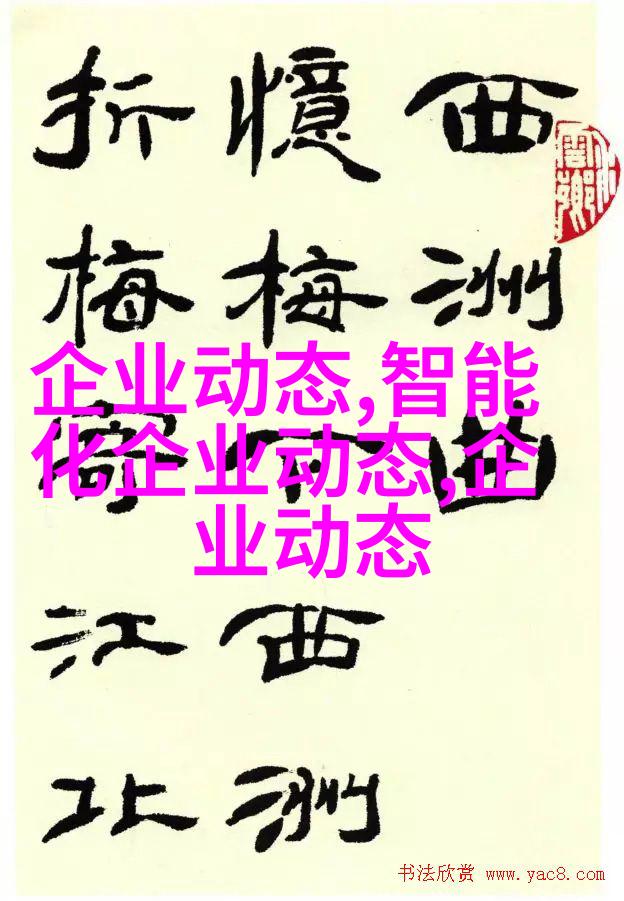 西洲曲
憶梅下西洲
折梅寄江北
企业动态,智能
化企业动态,企
业动态
书法欣赏 www.yac8.com